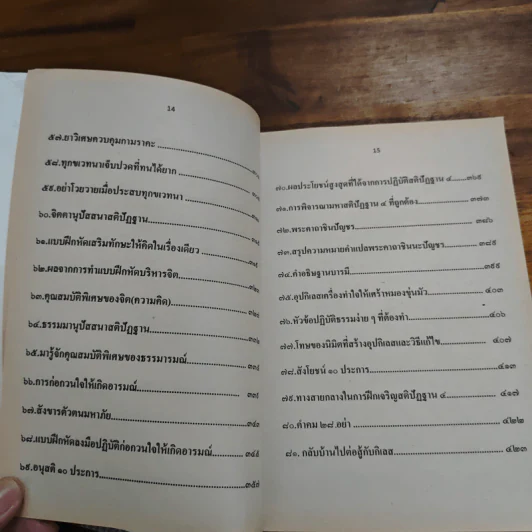 14
๕๗.ยาวิเศษควบคุมกามราคะ
๕๘.ทุกขเวทนาเจ็บปวดที่ทนได้ยาก
๕๙.อย่าโวยวายเมื่อประสบทุกขเวทนา
๖๐.จิตตานุปัสสนาสติปัฏฐาน
๖๑.แบบฝึกหัดเสริมทักษะให้คิดในเรื่องเดียว
๖๒.ผลจากการทำแบบฝึกหัดบริหารจิต
๖๓.คุณสมบัติพิเศษของจิต(ความคิด)
๖๔.ธรรมมานุปัสสนาสติปัฏฐาน
๖๕.มารู้จักคุณสมบัติพิเศษของธรรมารมณ์
๖๖.การก่อกวนใจให้เกิดอารมณ์
๖๗.สังขารตัวตนมหาภัย
๖๘.แบบฝึกหัดลงมือปฏิบัติก่อกวนใจให้เกิดอารมณ์
๖๙.อนุสติ ๑๐ ประการ
15
๗๐.ผลประโยชน์สูงสุดที่ได้จากการปฏิบัติสติปัฏฐาน ๔.......๓๖๕
๗๑.การพิจารณามหาสติปัฏฐาน ๔ ที่ถูกต้อง...............๓๗๓
๗๒.พระคาถาชินปัญชร...................................๓๘๖
๗๓.สรุปความหมายคำแปลพระคาถาชินนะปัญชร............๓๘๙
๗๔.คำอธิษฐานบารมี....................................๓๙๙
๗๕.อุปกิเลสเครื่องทำใจให้เศร้าหมองขุ่นมัว...............๔๐๓
๗๖.หัวข้อปฏิบัติธรรมง่าย ๆ ที่ต้องทำ....................๔๐๖
๗๗.โทษของนิมิตที่สร้างอุปกิเลสและวิธีแก้ไข.............. ๔๐๗
๗๘.สังโยชน์ ๑๐ ประการ...............................๔๑๓
๗๙.ทางสายกลางในการฝึกเจริญสติปัฏฐาน ๔.............๔๑๗
๘๐.คำคม ๒๘ อย่า.....................................๔๒๒
๘๑. กลับบ้านไปต่อสู้กับกิเลส............................๔๒๓